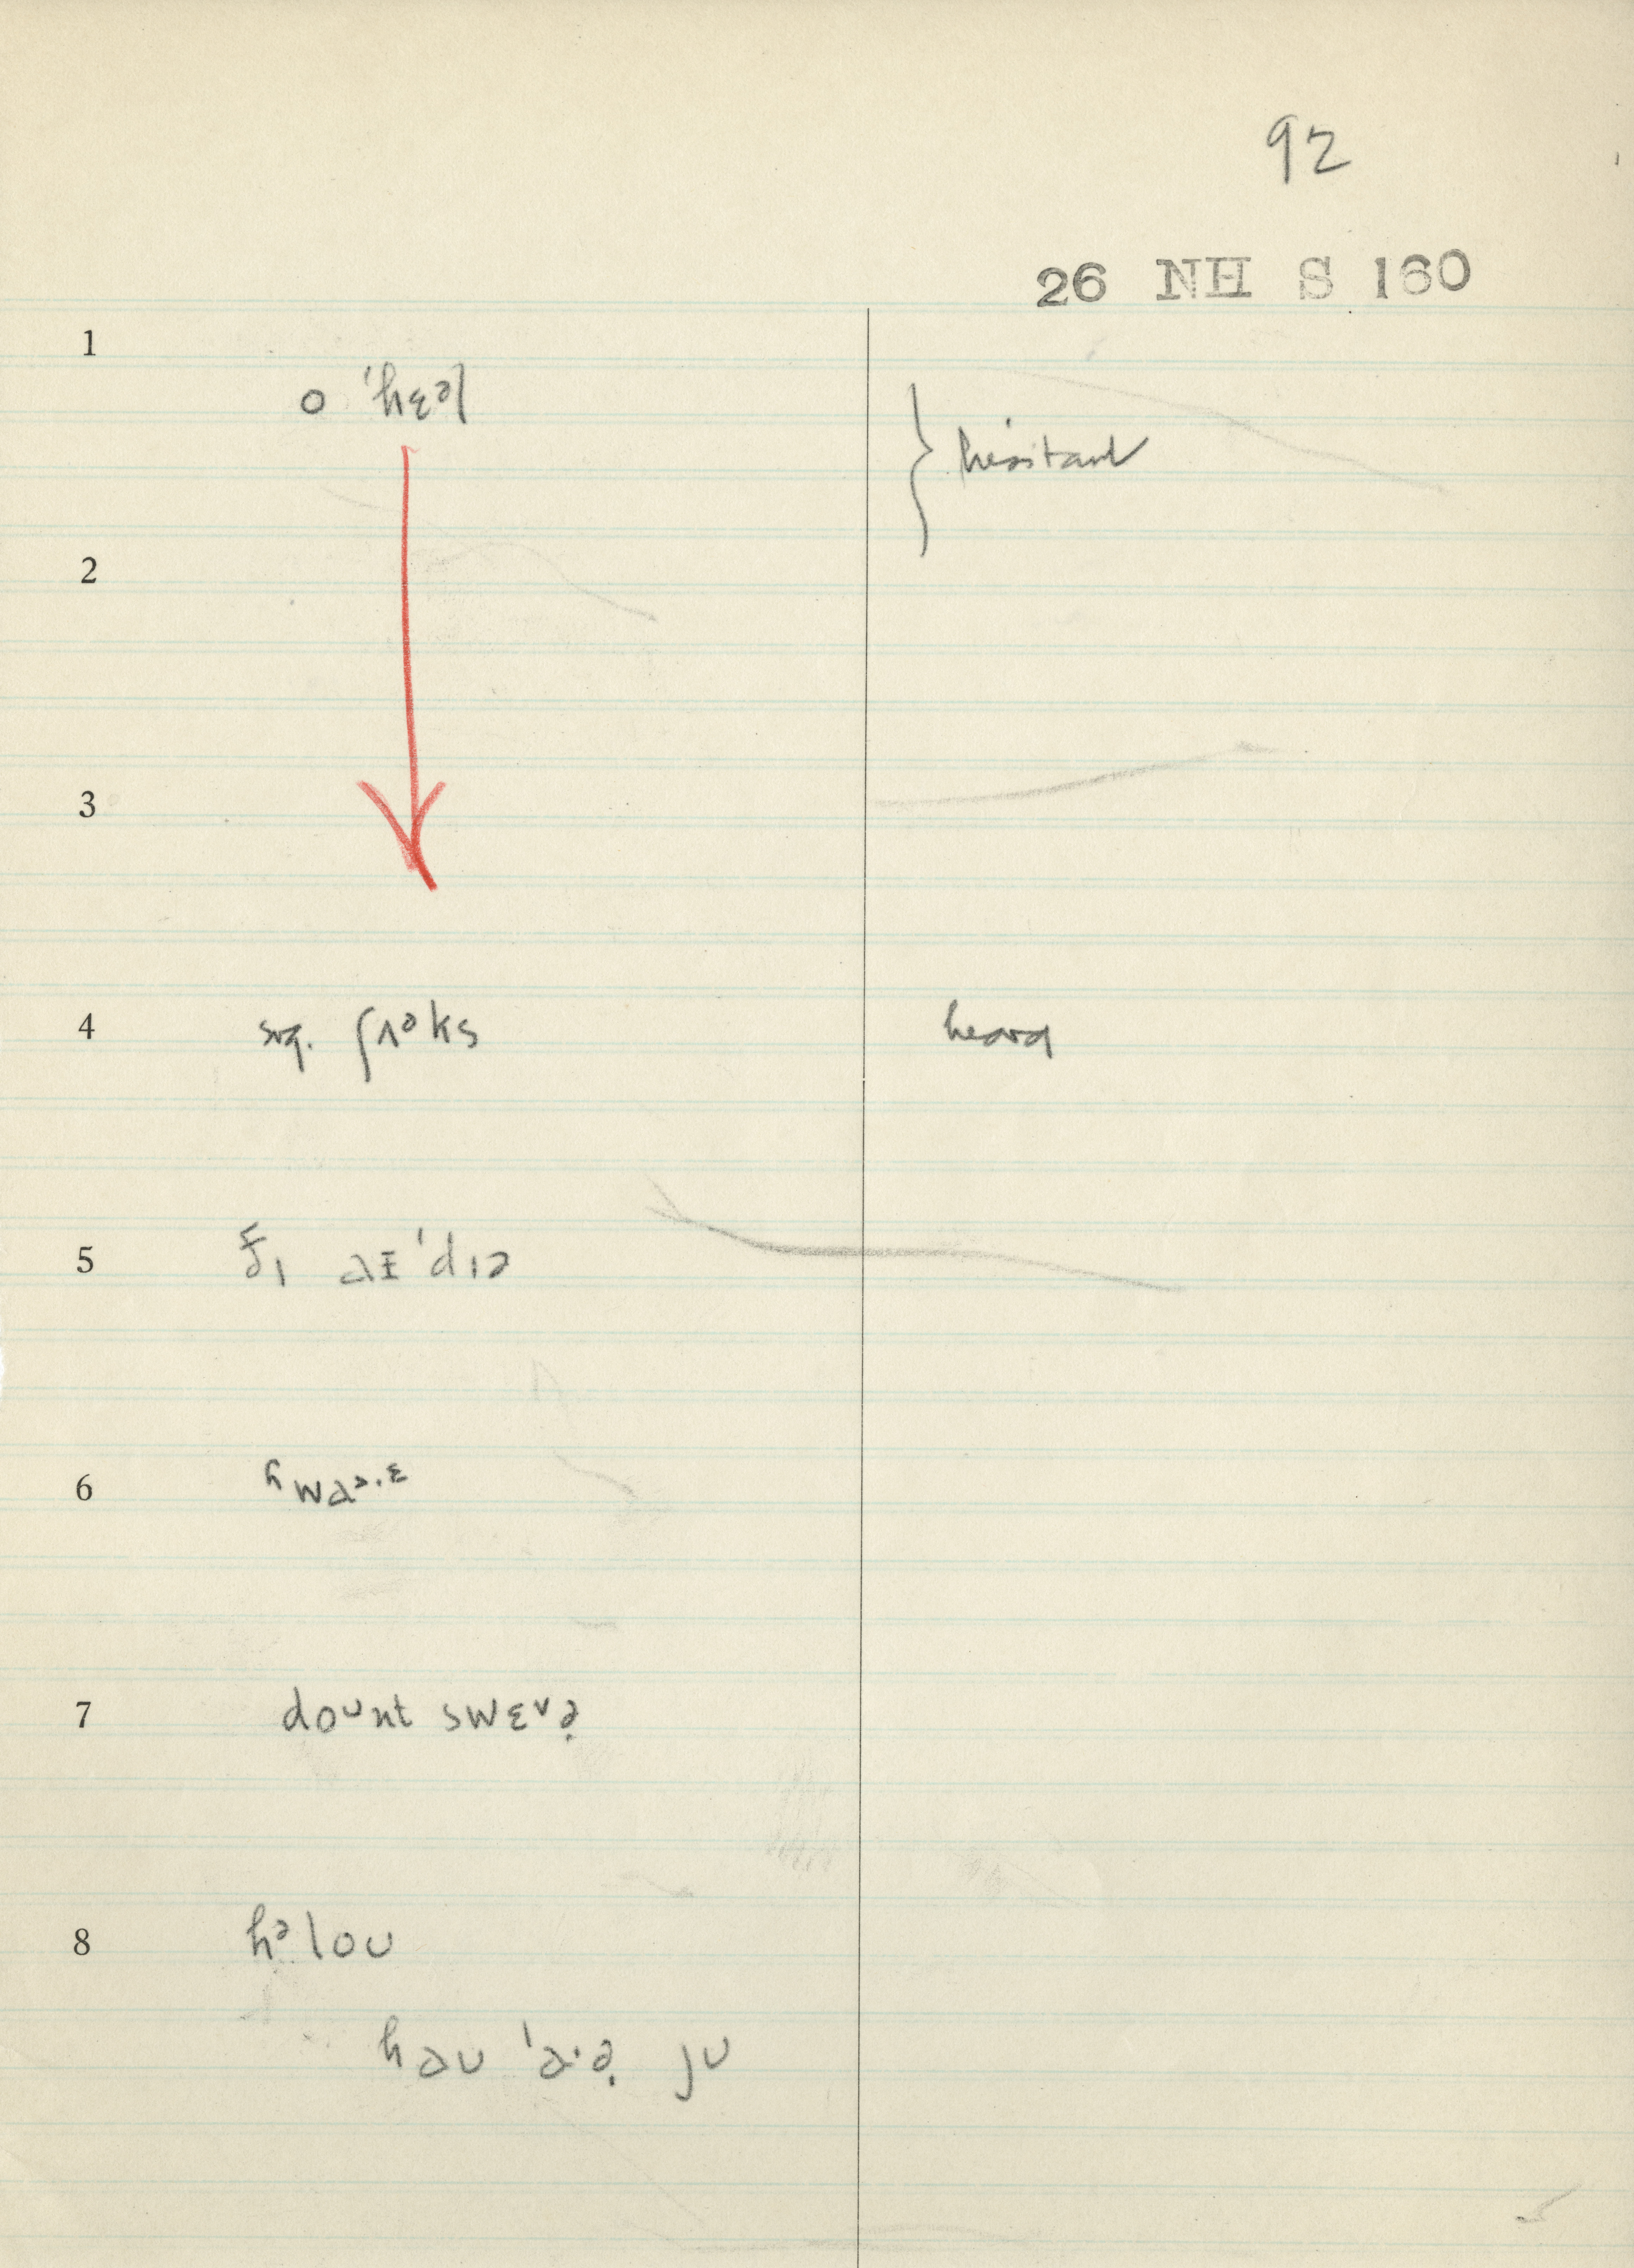 92
26 NH S 160
1
o ˈhɛəl
hesitant
2
3
4 sug. ʃʌᵊks heard
5 ðɪ aɪˈdɪə
6 ʰwaᵊ·ᵋ
7 doᵘnt swɛᵛə̣
8 hᵊloʊ
haʊ ˈa·ə̣ jʊ